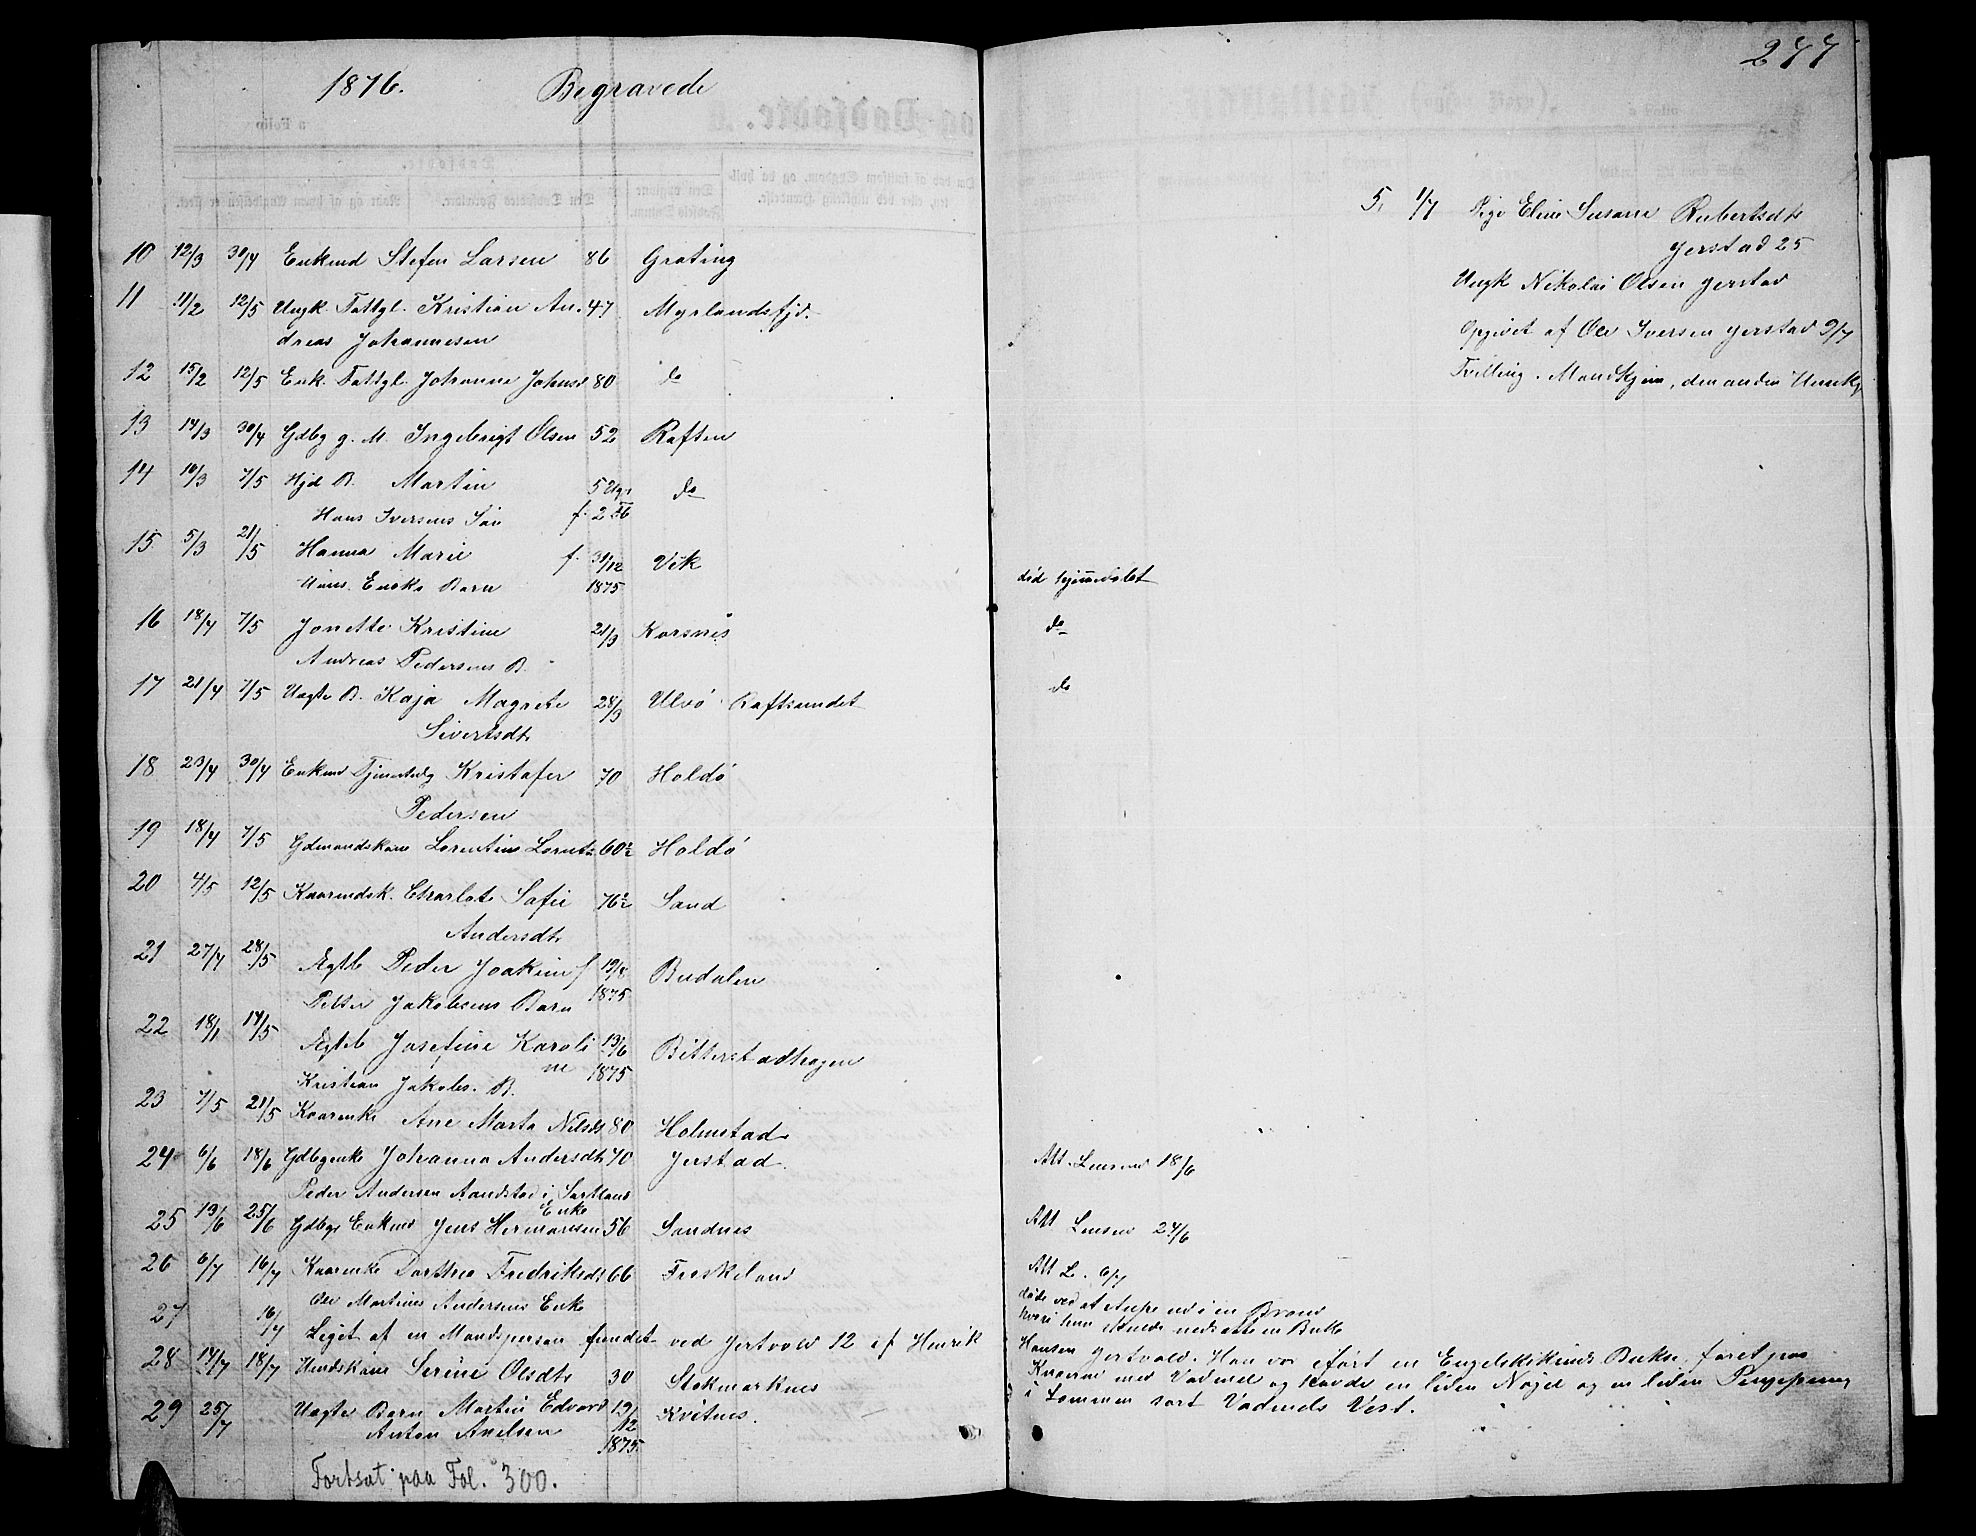 1876. Begravede
277
10 12/3 30/4 Enkmd Stefen Larsen 86 Grøting
11 11/2 12/5 Ungk. Fattgl. Kristian An- 47 Myrlandsfjd.
dreas Johannesen
12 15/2 12/5 Enk. Fattgl. Johanna Johnsd 80 do
13 14/3 30/4 Gdbg g. M. Ingebrigt Olsen 52 Raften
14 10/3 7/5 Hjd B. Martin 5 Ug. do
Hans Iversens Søn f. 2
15 5/3 21/5 Hanna Marie f. 31/12 Vik død hjemdøbt
Barn 1875
16 18/4 7/5 Jonette Kristine 21/3 Korsnes do
Andreas Pedersens B.
17 21/4 7/5 Uægte B. Kaja Magrete 28/3 Ulvø Raftsundet do
Sivertsdt
18 23/4 30/4 Enkmd Kristofer 70 Holdø
Pedersen
19 18/4 7/5 Gdmandskone Lorentine Lorntz 60½ Holdø
20 4/5 12/5 Kaarmdsk. Charlot Sofie 76½ Sand
Andersdt
21 27/4 28/5 Ægtb Peder Joakim f 19/8 Budalen
Petter Jakobsens Barn 1875
22 18/1 14/5 Ægteb Josefine Karoli 13/6 Bitterstadhagen
ne 1875
Kristian Jakobs. B.
23 7/5 21/5 Kaarenke Ane Marta Nilsdt 80 Holmstad
24 6/6 18/6 Gdbgenke Johanna Andersdt 70 Jerstad. Att. Lensmd 18/6
Peder Andersen Aandstad i Sortland
Enke
25 13/6 25/6 Gdbg. Enkmd Jens Hermansen 56 Sandnes Att Lensmd 24/6
26 6/7 16/7 Kaarenke Dorthea Fredriksdt 66 Freskeland Att L. 6/7
Ole Martines Andersens Enke
døde ved at stupe ud i en Brønd
hvori hun skulde nedsætte en Bøtte
27 16/7 Liget af en Mandsperson fundet ved Gjertvold 12 af Henrik
Hansen Gjertvold. Han var iført en Engelskskinds Bukse, foret paa
Knærne med Vadmel og havde en liden Nøgel og en liden Pengepung
i Lommen sort Vadmels Vest.
28 14/7 18/7 Serine Olsdt 30 Stokmarknes
29 25/7 Uægte Barn Martin Edvard 19/12 Kvitnes.
Anton 1875
Fortsat paa Fol. 300.
5. 1/7 Pige Eline Susane Rubertsdt
Jerstad 25
Ungk Nikolai Olsen Jerstad
Opgivet af Ole Iversen Jerstad 9/7
Tvilling. Mandkjøn, den anden